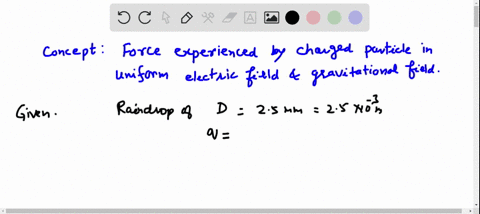 Concept: Force experienced by charged particle in
uniform electric field & gravitational field.
Given. Raindrop of D = 2.5 mm = 2.5 x10⁻³ m
q =